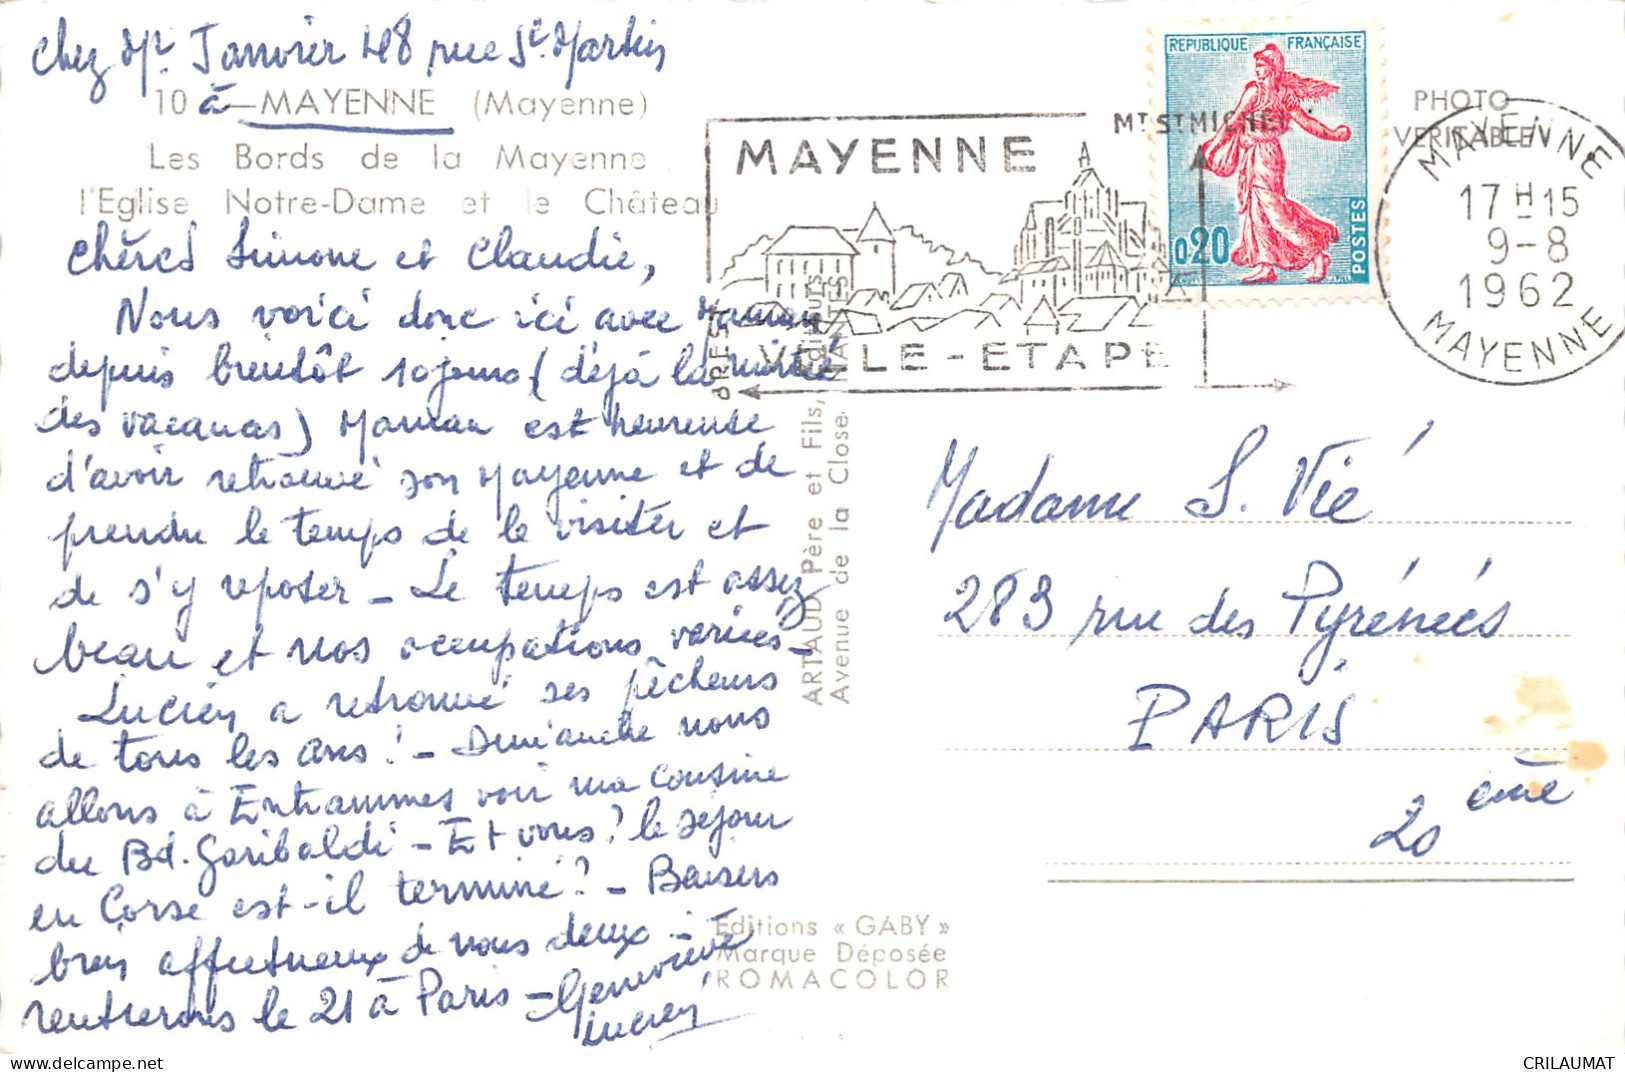 Chez Mr. Janvier 48 rue St. Martin
10 à — MAYENNE (Mayenne)
Les Bords de la Mayenne
l'Eglise Notre-Dame et le Château
Chères Simone et Claudie,
Nous voici donc ici avec Maman
depuis bientôt 10 jours (déjà la moitié
des vacances) Maman est heureuse
d'avoir retrouvé son Mayenne et de
prendre le temps de le visiter et
de s'y reposer - Le temps est assez
beau et nos occupations variées -
Lucien a retrouvé ses pêcheurs
de tous les ans! - Dimanche nous
allons à Entrammes voir ma cousine
du Bd. Garibaldi - Et vous? le séjour
en Corse est-il terminé? - Baisers
bien affectueux de nous deux -
rentrerons le 21 à Paris - Geneviève
Lucien
MAYENNE
MT ST MICHEL
BREST
VILLE-ETAPE
NANTES
REPUBLIQUE FRANÇAISE
0,20
POSTES
PHOTO
VERITABLE
MAYENNE
17 H 15
9-8
1962
MAYENNE
ARTAUD Père et Fils, Editeurs
Avenue de la Close
Madame S. Vié
283 rue des Pyrénées
PARIS
20 ème
Editions « GABY »
Marque Déposée
ROMACOLOR
CRILAUMAT